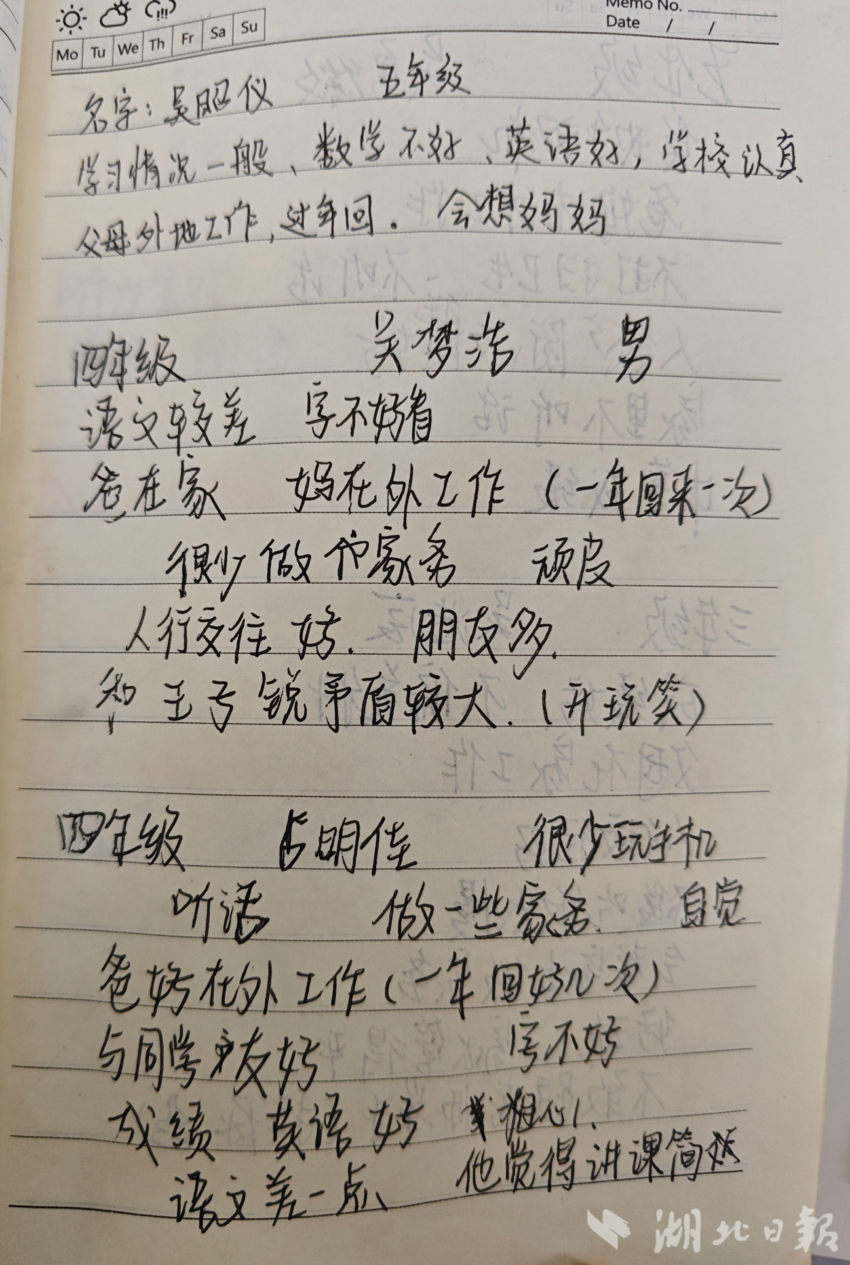 Memo No.
Mo Tu We Th Fr Sa Su
Date / /
名字:吴昭仪 五年级
学习情况一般、数学不好、英语好,学校认真
父母外地工作,过年回. 会想妈妈
四年级 吴梦浩 男
语文较差 字不好看
爸在家 妈在外工作(一年回来一次)
很少做 家务 顽皮
人行交往好. 朋友多.
和王 锐矛盾较大.(开玩笑)
四年级 占明佳 很少玩手机
听话 做一些家务. 自觉
爸妈在外工作(一年回好几次)
与同学 友好 字不好
成绩 英语好 粗心.
语文差一点、 他觉得讲课简
湖北日報